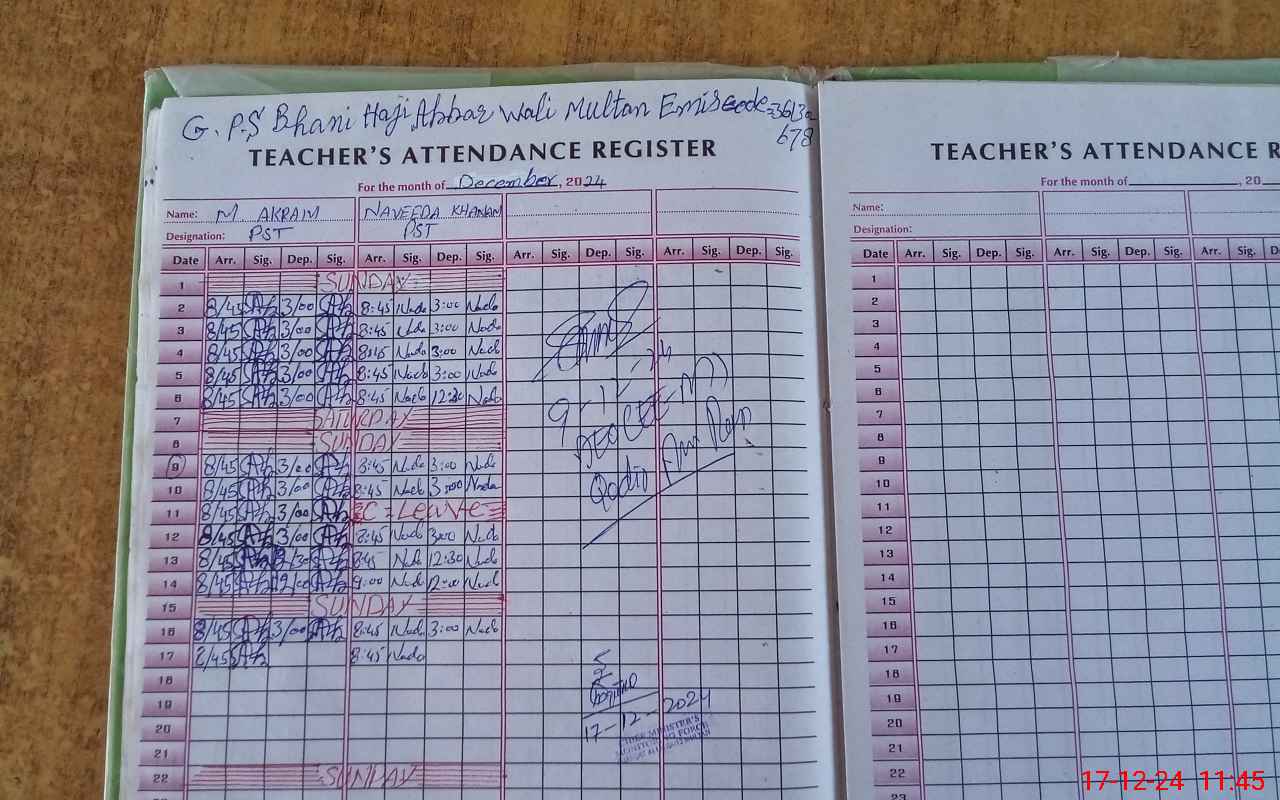 G. P.S Bhani Haji Abbar Wali Multan Emiscode=36130
678
TEACHER'S ATTENDANCE REGISTER
For the month of December, 2024
Name: M. AKRAM NAVEEDA KHANAM
Designation: PST PST
Date Arr. Sig. Dep. Sig. Arr. Sig. Dep. Sig. Arr. Sig. Dep. Sig. Arr. Sig. Dep. Sig.
1 SUNDAY
2 8/45 3/00 8:45 Nada 3:00 Nada
3 8/45 3/00 8:45 3:00 Nada
4 8/45 3/00 8:45 Nada 3:00 Nada
5 8/45 3/00 8:45 Nada 3:00 Nada
6 8/45 3/00 8:45 Nada 12:30 Nada
7 SATURDAY
8 SUNDAY
9 8/45 3/00 8:45 Nada 3:00 Nada
10 8/45 3/00 8:45 Nada 3:00 Nada
11 8/45 3/00 C = Leave
12 8/45 3/00 8:45 Nada 3:00 Nada
13 8/45 8:45 Nada 12:30 Nada
14 8/45 9:00 Nada 12:00 Nada
15 SUNDAY
16 8/45 3/00 8:45 Nada 3:00 Nada
17 8/45 8:45 Nada
18
19
20
21
22 SUNDAY
9-12-24
Qadir Pur Ran
17-12-2024
CHIEF MINISTER'S
MONITORING FORCE
TEACHER'S ATTENDANCE R
For the month of , 20
Name:
Designation:
Date Arr. Sig. Dep. Sig. Arr. Sig. Dep. Sig. Arr. Sig.
1
2
3
4
5
6
7
8
9
10
11
12
13
14
15
16
17
18
19
20
21
22
23
17-12-24 11:45